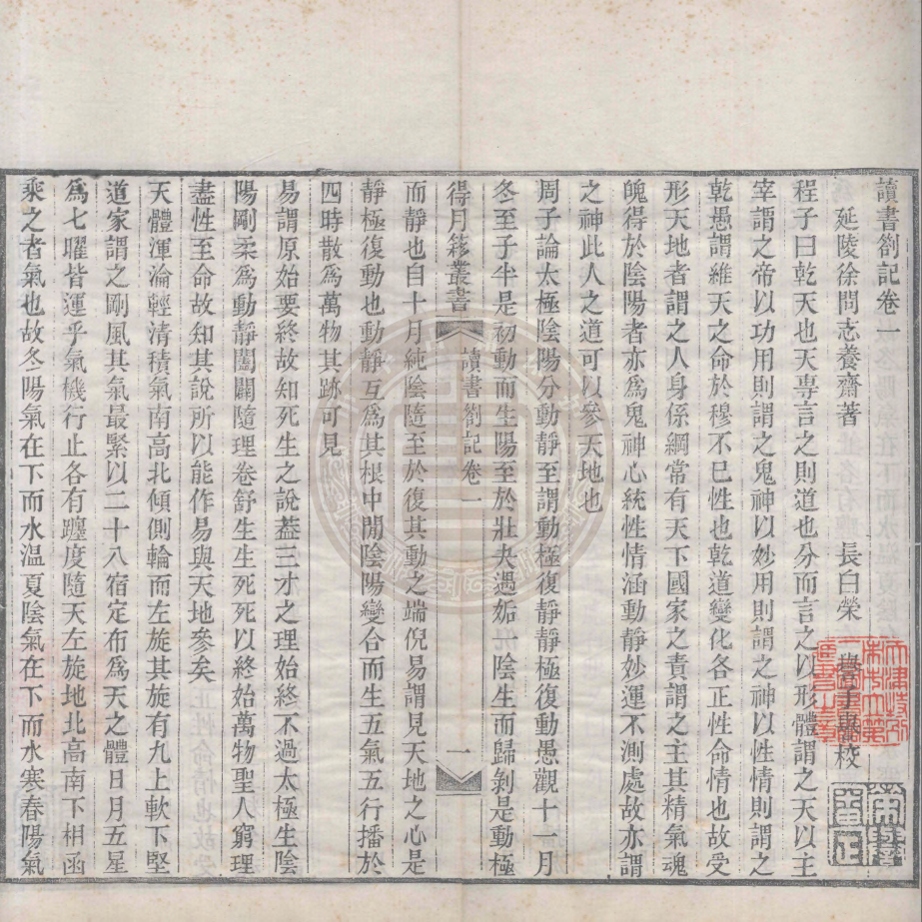 讀書劄記卷一
延陵徐問志養齋著　長白榮譽子譽校
程子曰乾天也天專言之則道也分而言之以形體謂之天以主
宰謂之帝以功用則謂之鬼神以妙用則謂之神以性情則謂之
乾愚謂維天之命於穆不巳性也乾道變化各正性命情也故受
形天地者謂之人身係綱常有天下國家之責謂之主其精氣魂
魄得於陰陽者亦爲鬼神心統性情涵動靜妙運不測處故亦謂
之神此人之道可以參天地也
周子論太極陰陽分動靜至謂動極復靜靜極復動愚觀十一月
冬至子半是初動而生陽至於壯夬遇姤一陰生而歸剝是動極
得月簃叢書　讀書劄記卷一　一
而靜也自十月純陰隨至於復其動之端倪易謂見天地之心是
靜極復動也動靜互爲其根中閒陰陽變合而生五氣五行播於
四時散爲萬物其跡可見
易謂原始要終故知死生之說葢三才之理始終不過太極生陰
陽剛柔爲動靜闔闢隨理卷舒生生死死以終始萬物聖人窮理
盡性至命故知其說所以能作易與天地參矣
天體渾淪輕清積氣南高北傾側輪而左旋其旋有九上軟下堅
道家謂之剛風其氣最緊以二十八宿定布爲天之體日月五星
爲七曜皆運乎氣機行止各有躔度隨天左旋地北高南下相函
乘之者氣也故冬陽氣在下而水温夏陰氣在下而水寒春陽氣